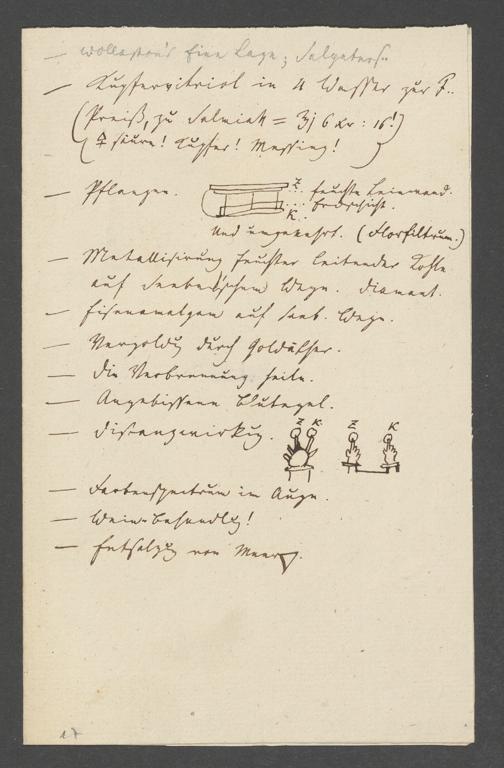 — Wollaston's Eine Lage; Salpeters..
— Kupfervitriol in 4 Wasser zur F..
(Preiß, zu Salmiak = ℥j 6 Kr: 16!)
(♀ säure! Kupfer! Messing!)
— Pflanzen. Z ... feuchte Leinwand.
... Erdschicht.
K.
Und umgekehrt. (Florfiltrum.)
— Metallisirung feuchter leitender Kohle
auf Seebeckschem Wege. Diamant.
— Eisenamalgam auf Seeb. Wege.
— Vergoldg durch Goldäther.
— Die Verbrennung seitn.
— Angebissene Blutegel.
— Distanzwirkg. Z K Z K
— Farbenspectrum im Auge.
— Wein-Behandlg!
— Entsalzg von Meer▽.
17